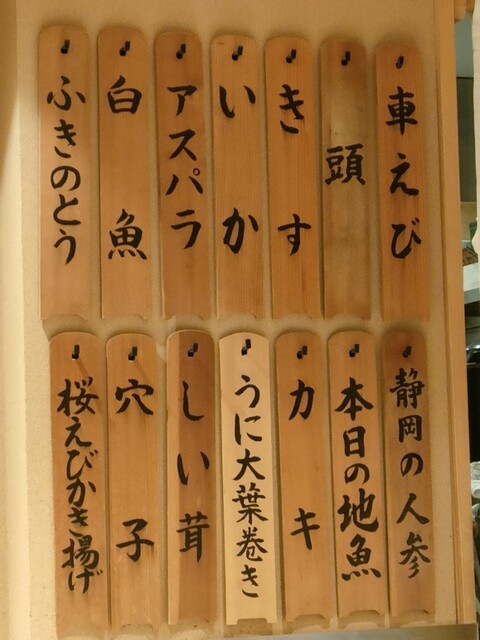 車えび
頭
きす
いか
アスパラ
白魚
ふきのとう
静岡の人参
本日の地魚
カキ
うに大葉巻き
しい茸
穴子
桜えびかき揚げ